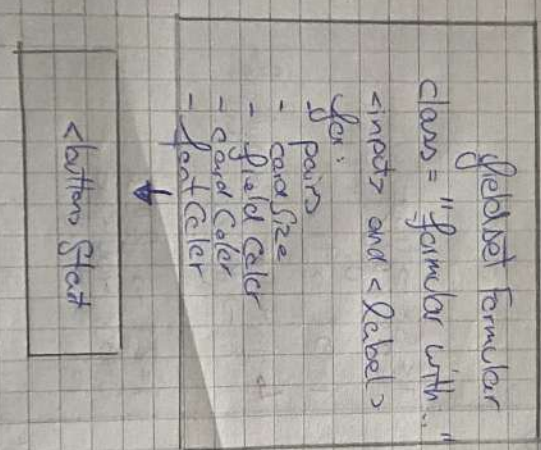 fieldset Formular
class = "formular with.."
<input> and <label>
for:
- pairs
- card size
- field Color
- card Color
- font Color
<button> Start